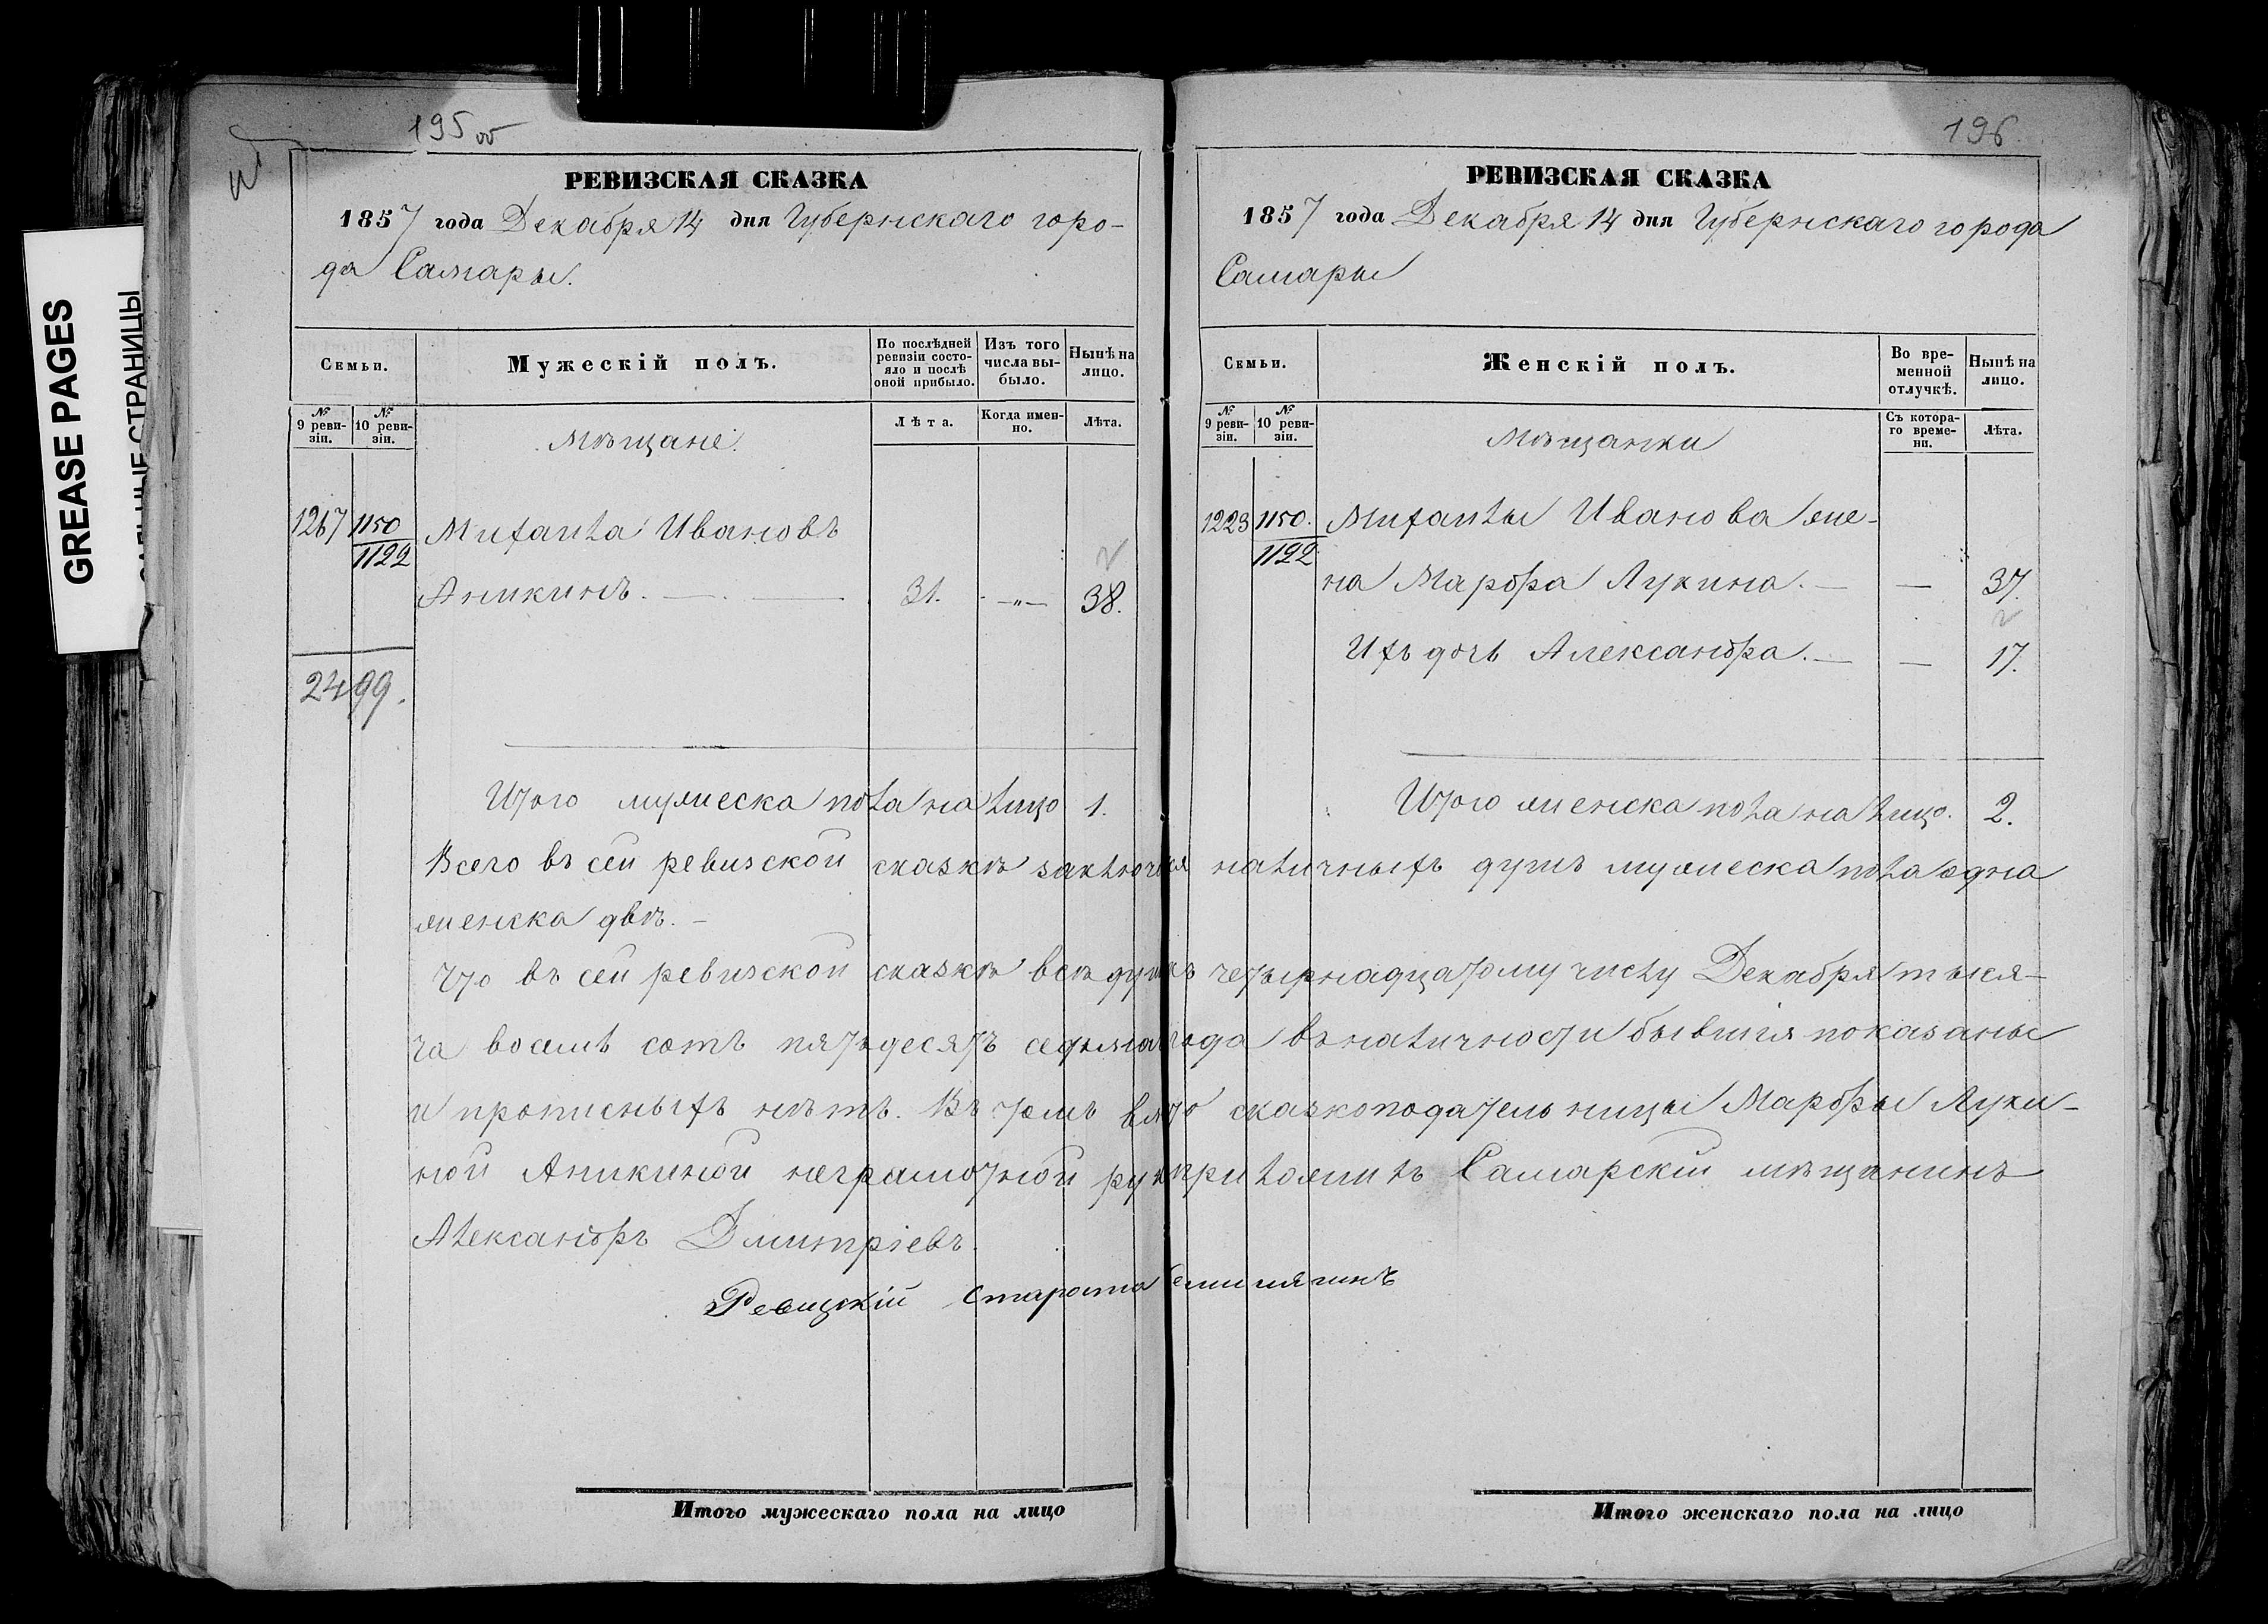 GREASE PAGES
195 об
РЕВИЗСКАЯ СКАЗКА
1857 года Декабря 14 дня Губернскаго горо-
да Самары.
Семьи.
Мужескій полъ.
По послѣдней ревизіи состояло и послѣ оной прибыло.
Изъ того числа выбыло.
Нынѣ на лицо.
№ 9 ревизіи.
№ 10 ревизіи.
Мѣщане.
Лѣта.
Когда именно.
Лѣта.
1267 1150 Михайла Ивановъ
1122
Аникинъ. — 31. —"— 38.
2499.
Итого мужеска пола на лицо 1.
196.
РЕВИЗСКАЯ СКАЗКА
1857 года Декабря 14 дня Губернскаго города
Самары
Семьи.
Женскій полъ.
Во временной отлучкѣ.
Нынѣ на лицо.
№ 9 ревизіи.
№ 10 ревизіи.
Мѣщанки
Съ котораго времени.
Лѣта.
1223 1150. Михайлы Иванова же-
1122
на Марфа Лукина. — — 37.
Ихъ дочь Александра. — — 17.
Итого женска пола на лицо. 2.
Всего въ сей ревизской сказкѣ заключ наличныхъ душъ мужеска пола одна
женска двѣ. —
Что въ сей ревизской сказкѣ всѣ души къ четырнадцатому числу Декабря тыся-
ча восемь сотъ пятьдесятъ седьма года въ наличности бывшія показаны
и прописныхъ нѣтъ. Въ томъ вмѣсто сказкоподательницы Марфы Луки-
ной Аникиной неграмотной руку приложилъ Самарскій мѣщанинъ
Александръ Дмитріевъ.
Ревизскій Староста
Итого мужескаго пола на лицо
Итого женскаго пола на лицо